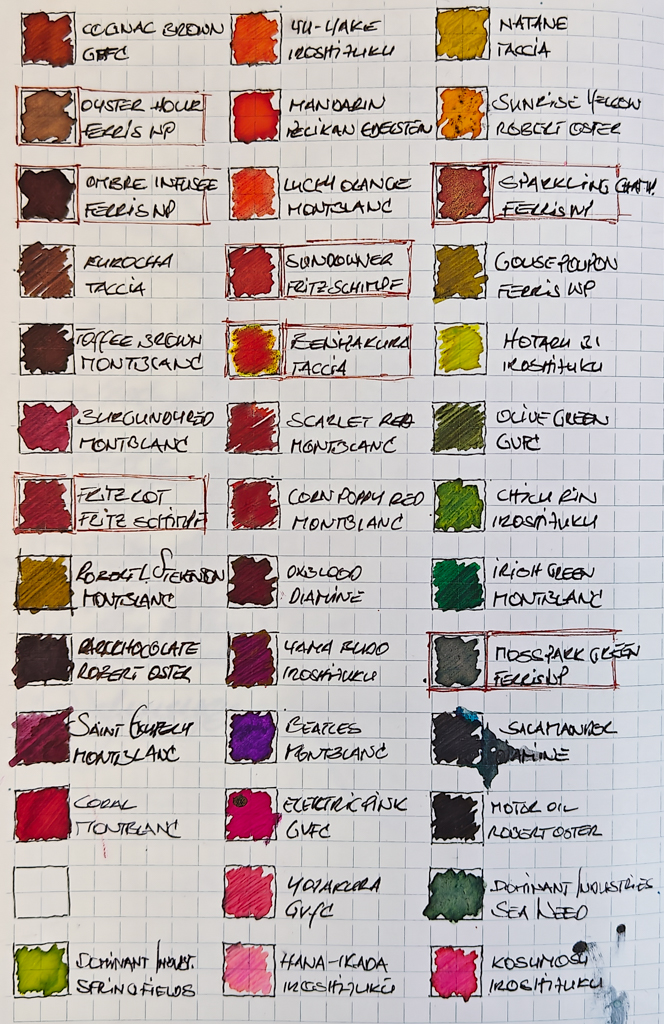 COGNAC BROWN
GVFC
OYSTER HOUR
FERRIS WP
OMBRE INFUSEE
FERRIS WP
KUROCHA
TACCIA
TOFFEE BROWN
MONTBLANC
BURGUNDY RED
MONTBLANC
FRITZ ROT
FRITZ SCHIMPF
ROBERT L. STEVENSON
MONTBLANC
DARKCHOCOLATE
ROBERT OSTER
SAINT EXUPERY
MONTBLANC
CORAL
MONTBLANC
DOMINANT INDUST.
SPRINGFIELDS
YU-YAKE
IROSHIZUKU
MANDARIN
PELIKAN EDELSTEIN
LUCKY ORANGE
MONTBLANC
SUNDOWNER
FRITZ SCHIMPF
BENIZAKURA
TACCIA
SCARLET RED
MONTBLANC
CORN POPPY RED
MONTBLANC
OXBLOOD
DIAMINE
YAMA BUDO
IROSHIZUKU
BEATLES
MONTBLANC
ELECTRIC PINK
GVFC
YOZAKURA
GVFC
HANA-IKADA
IROSHIZUKU
NATANE
TACCIA
SUNRISE YELLOW
ROBERT OSTER
SPARKLING
FERRIS WP
GOOSE POUPON
FERRIS WP
HOTARU BI
IROSHIZUKU
OLIVE GREEN
GVFC
CHIKU RIN
IROSHIZUKU
IRISH GREEN
MONTBLANC
MOSS PARK GREEN
FERRIS WP
SALAMANDER
DIAMINE
MOTOR OIL
ROBERT OSTER
DOMINANT INDUSTRIES.
SEA WEED
KOSUMOSU
IROSHIZUKU